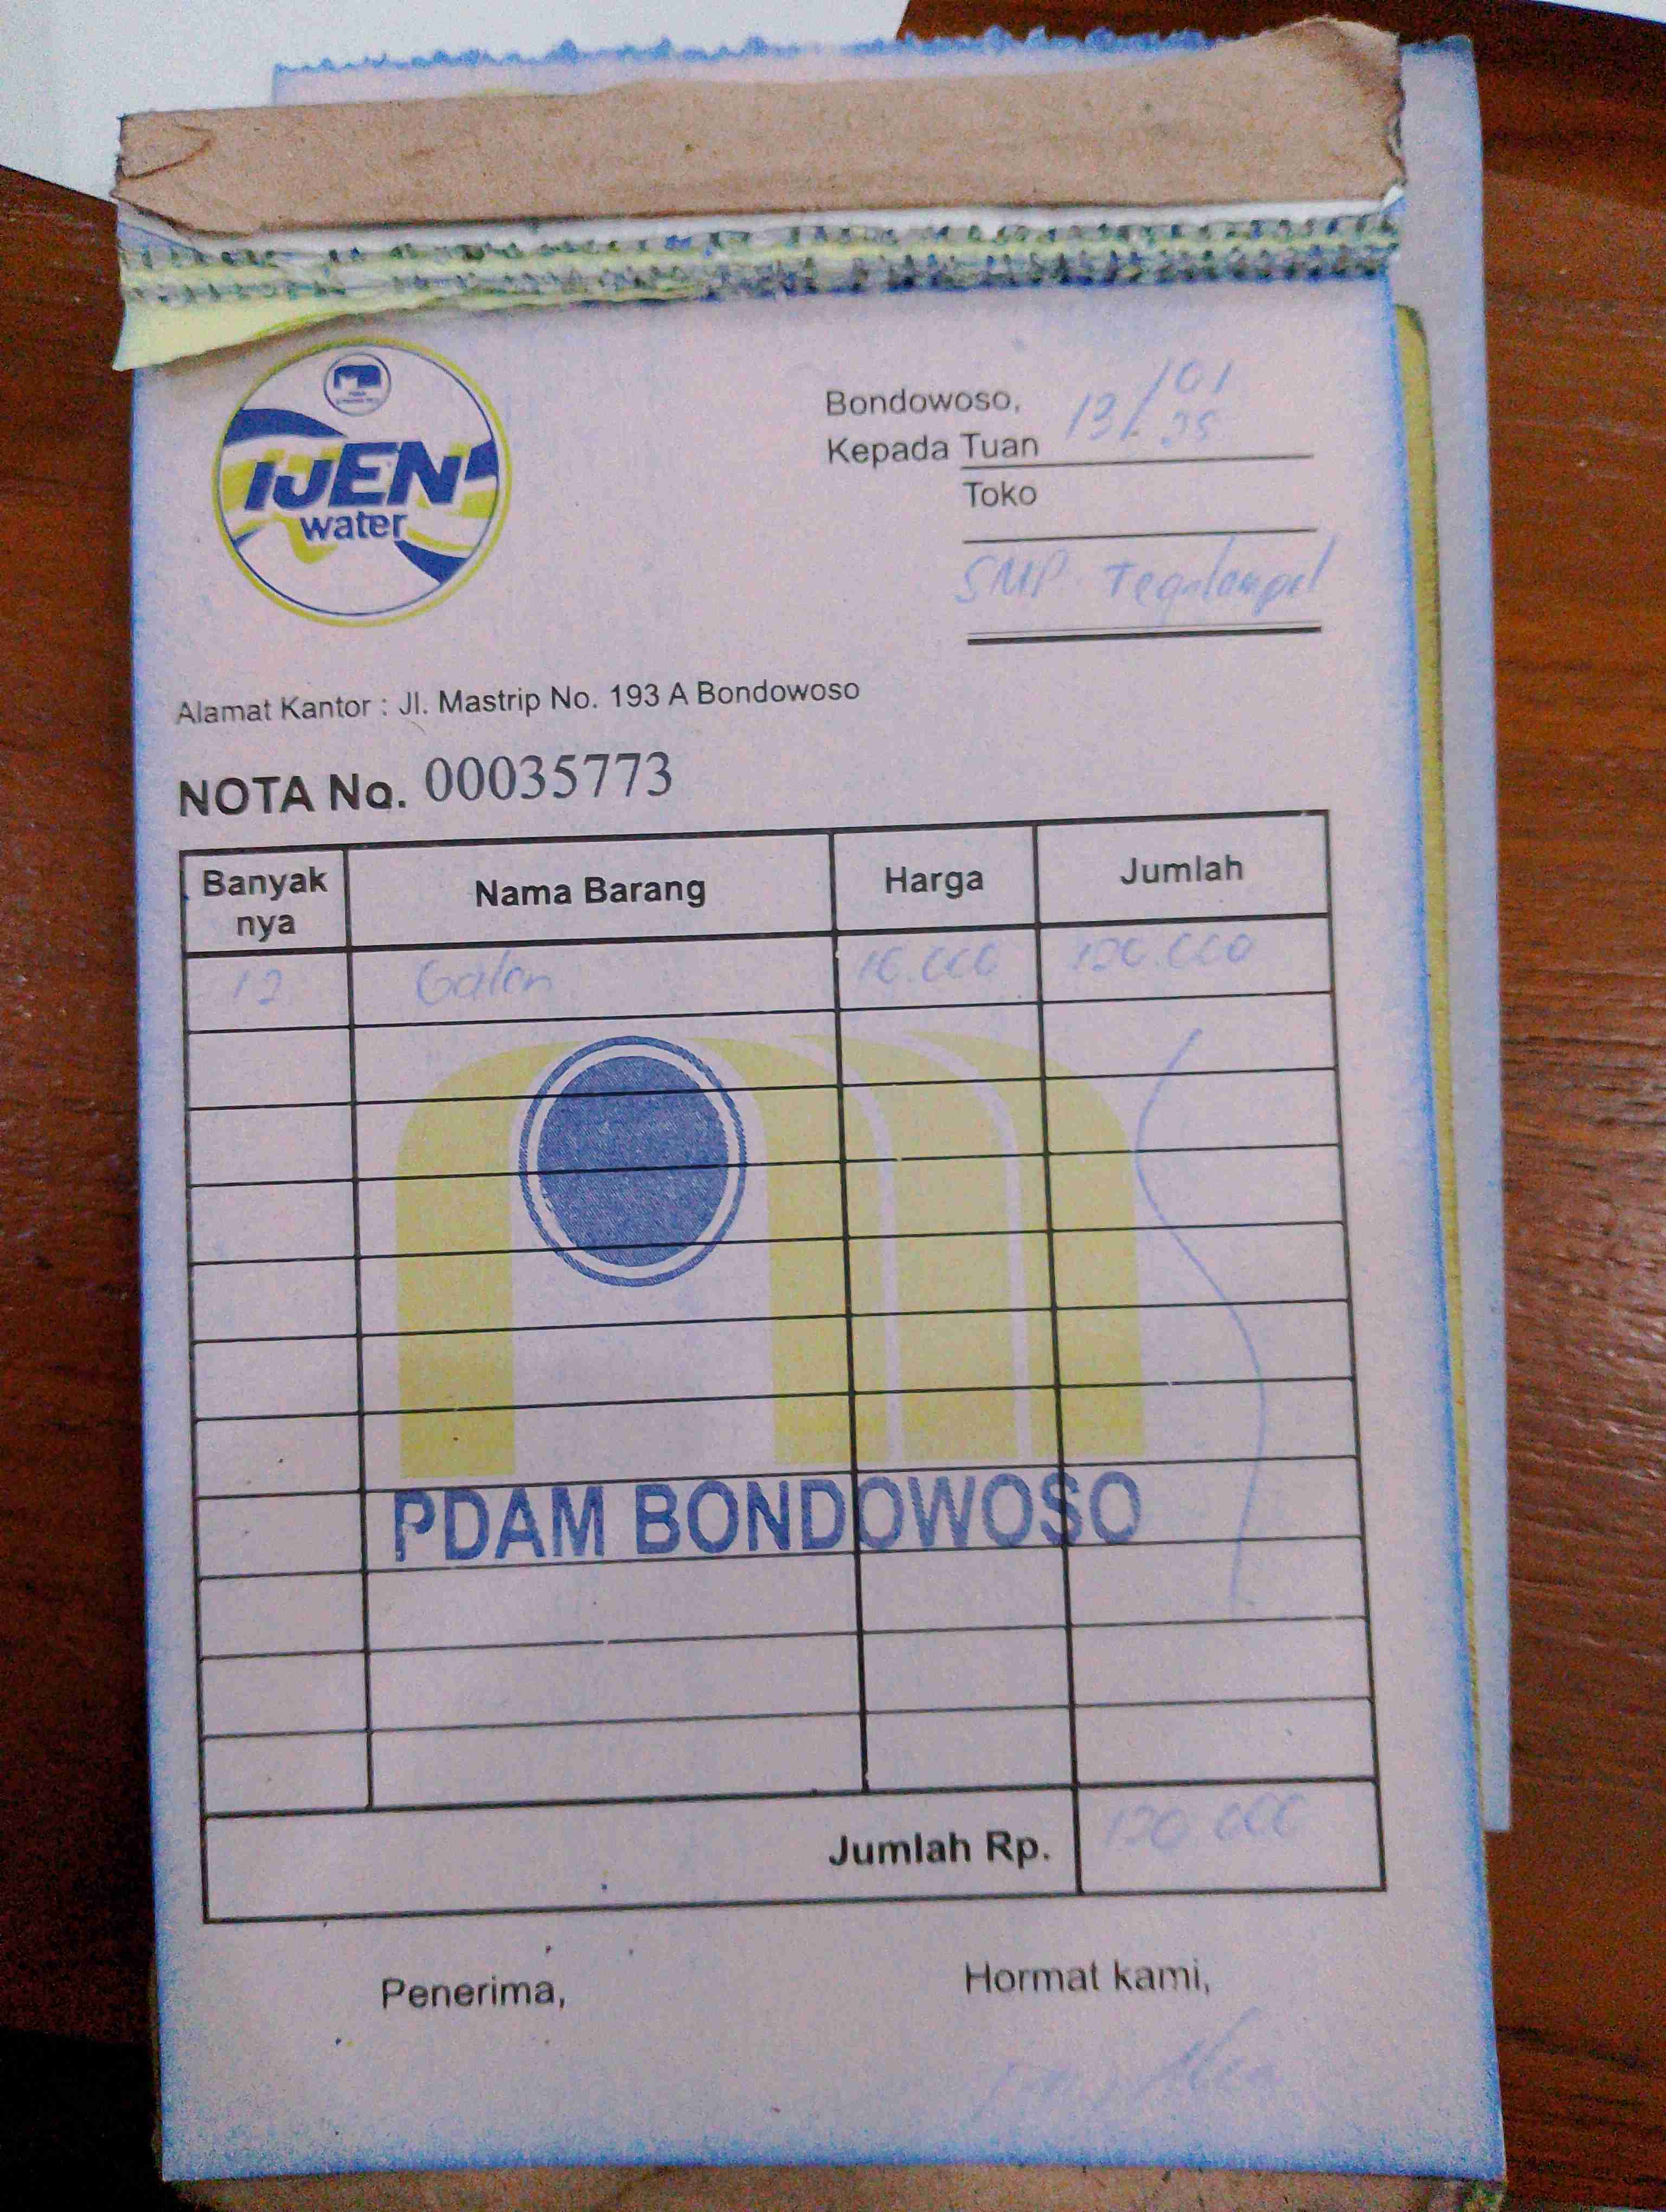 IJEN
water
Bondowoso, 13/01
25
Kepada Tuan
Toko
SMP Tegalampel
Alamat Kantor : Jl. Mastrip No. 193 A Bondowoso
NOTA No. 00035773
Banyak nya Nama Barang Harga Jumlah
12 Galon 10.000 120.000
PDAM BONDOWOSO
Jumlah Rp. 120 000
Penerima, Hormat kami,